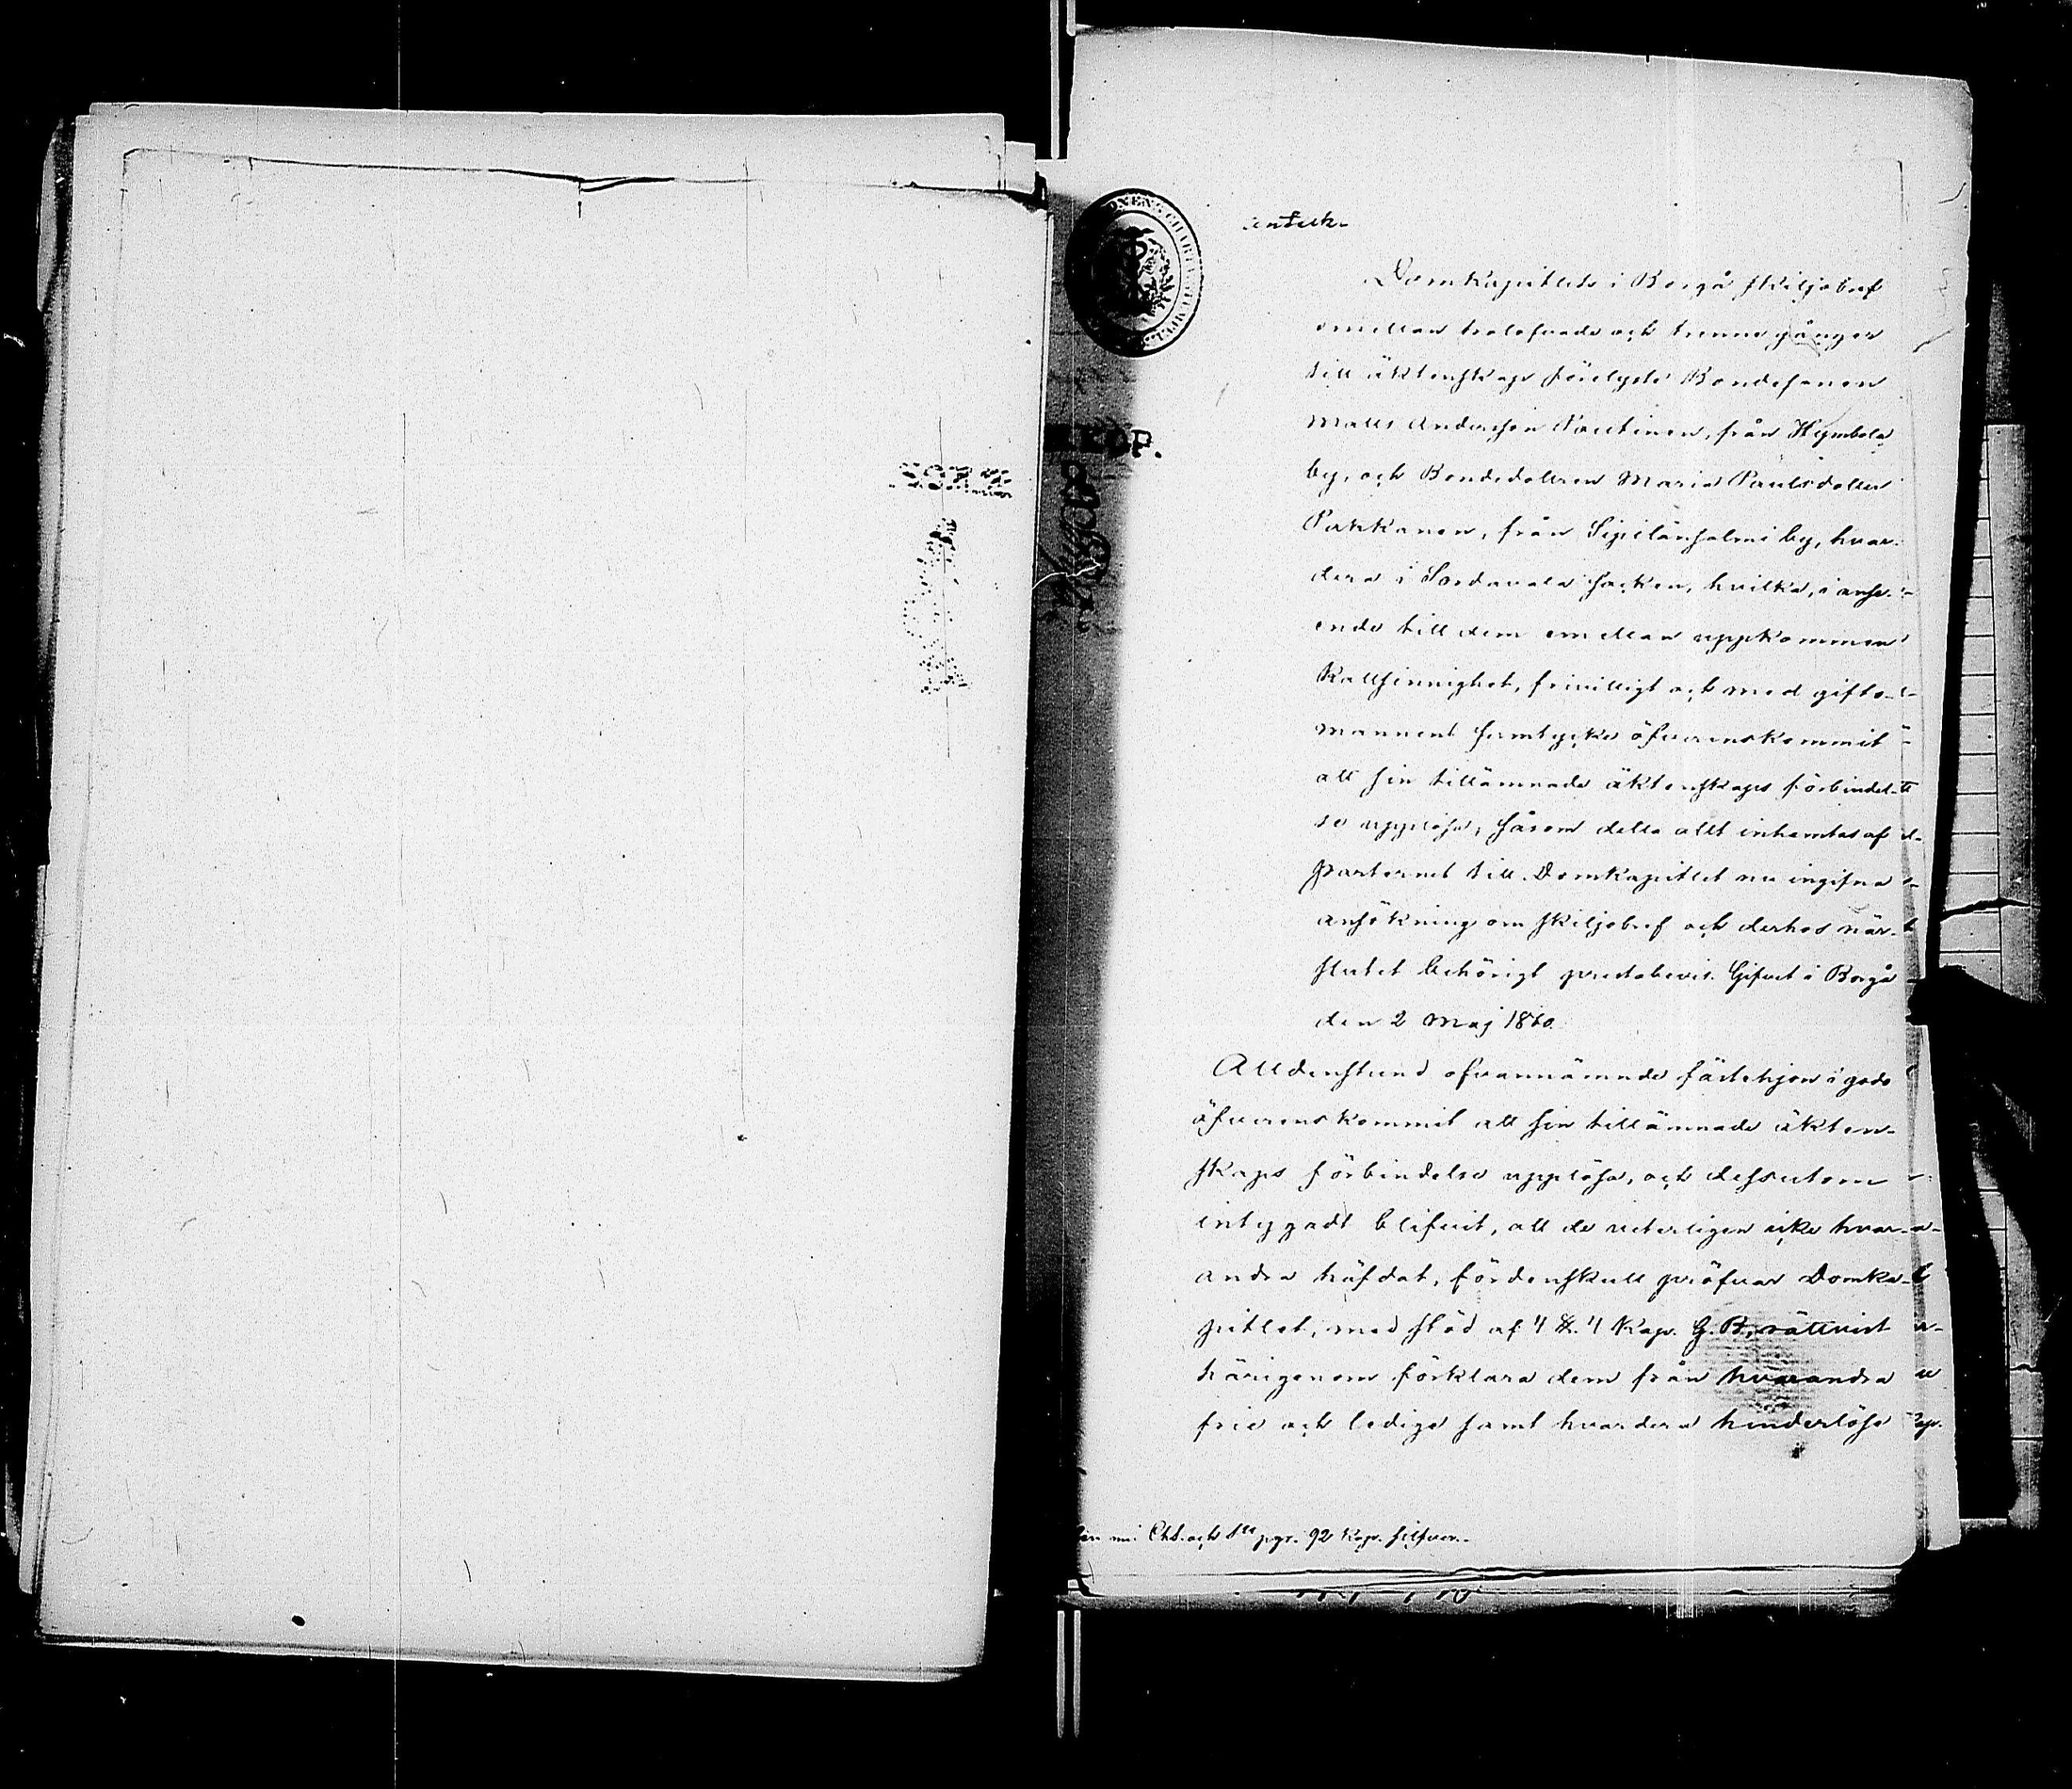 KOP.
Domkapitlets i Borgå skiljobref
emellan trolofvade och trenne gånger
till äktenskap förelyste Bondesonen
Matts Andersson Pautinen, från Hympola
by, och Bondedottren Maria Paulsdotter
Pakkanen, från Sipilänsalmi by, hvar-
dera i Sordavala socken, hvilka, i anse-
ende till dem emellan uppkommen
Kallsinnighet, frivilligt och med gifto-
mannens samtycke öfverenskommit
att sin tillämnade äktenskaps förbindel-
se upplösa, såsom detta allt inhemtas af
parternes till Domkapitlet nu ingifna
ansökning om skiljobref och derhos när-
slutet behörigt prestbevis. Gifvet i Borgå
den 2 Maj 1860.
Alldenstund ofvannämnde fästehjon i godo
öfverenskommit att sin tillämnade äkten-
skaps förbindelse upplösa, och dessutom
intygadt blifvit, att de veterligen icke hvar-
andra häfdat, fördenskull pröfvar Domka-
pitlet, med stöd af 4 §. 4 Kap. G. B., rättvist
härigenom förklara dem från hvarandra
frie och ledige samt hvardera hinderlöse
Chd. och 92 Kop. silfver.